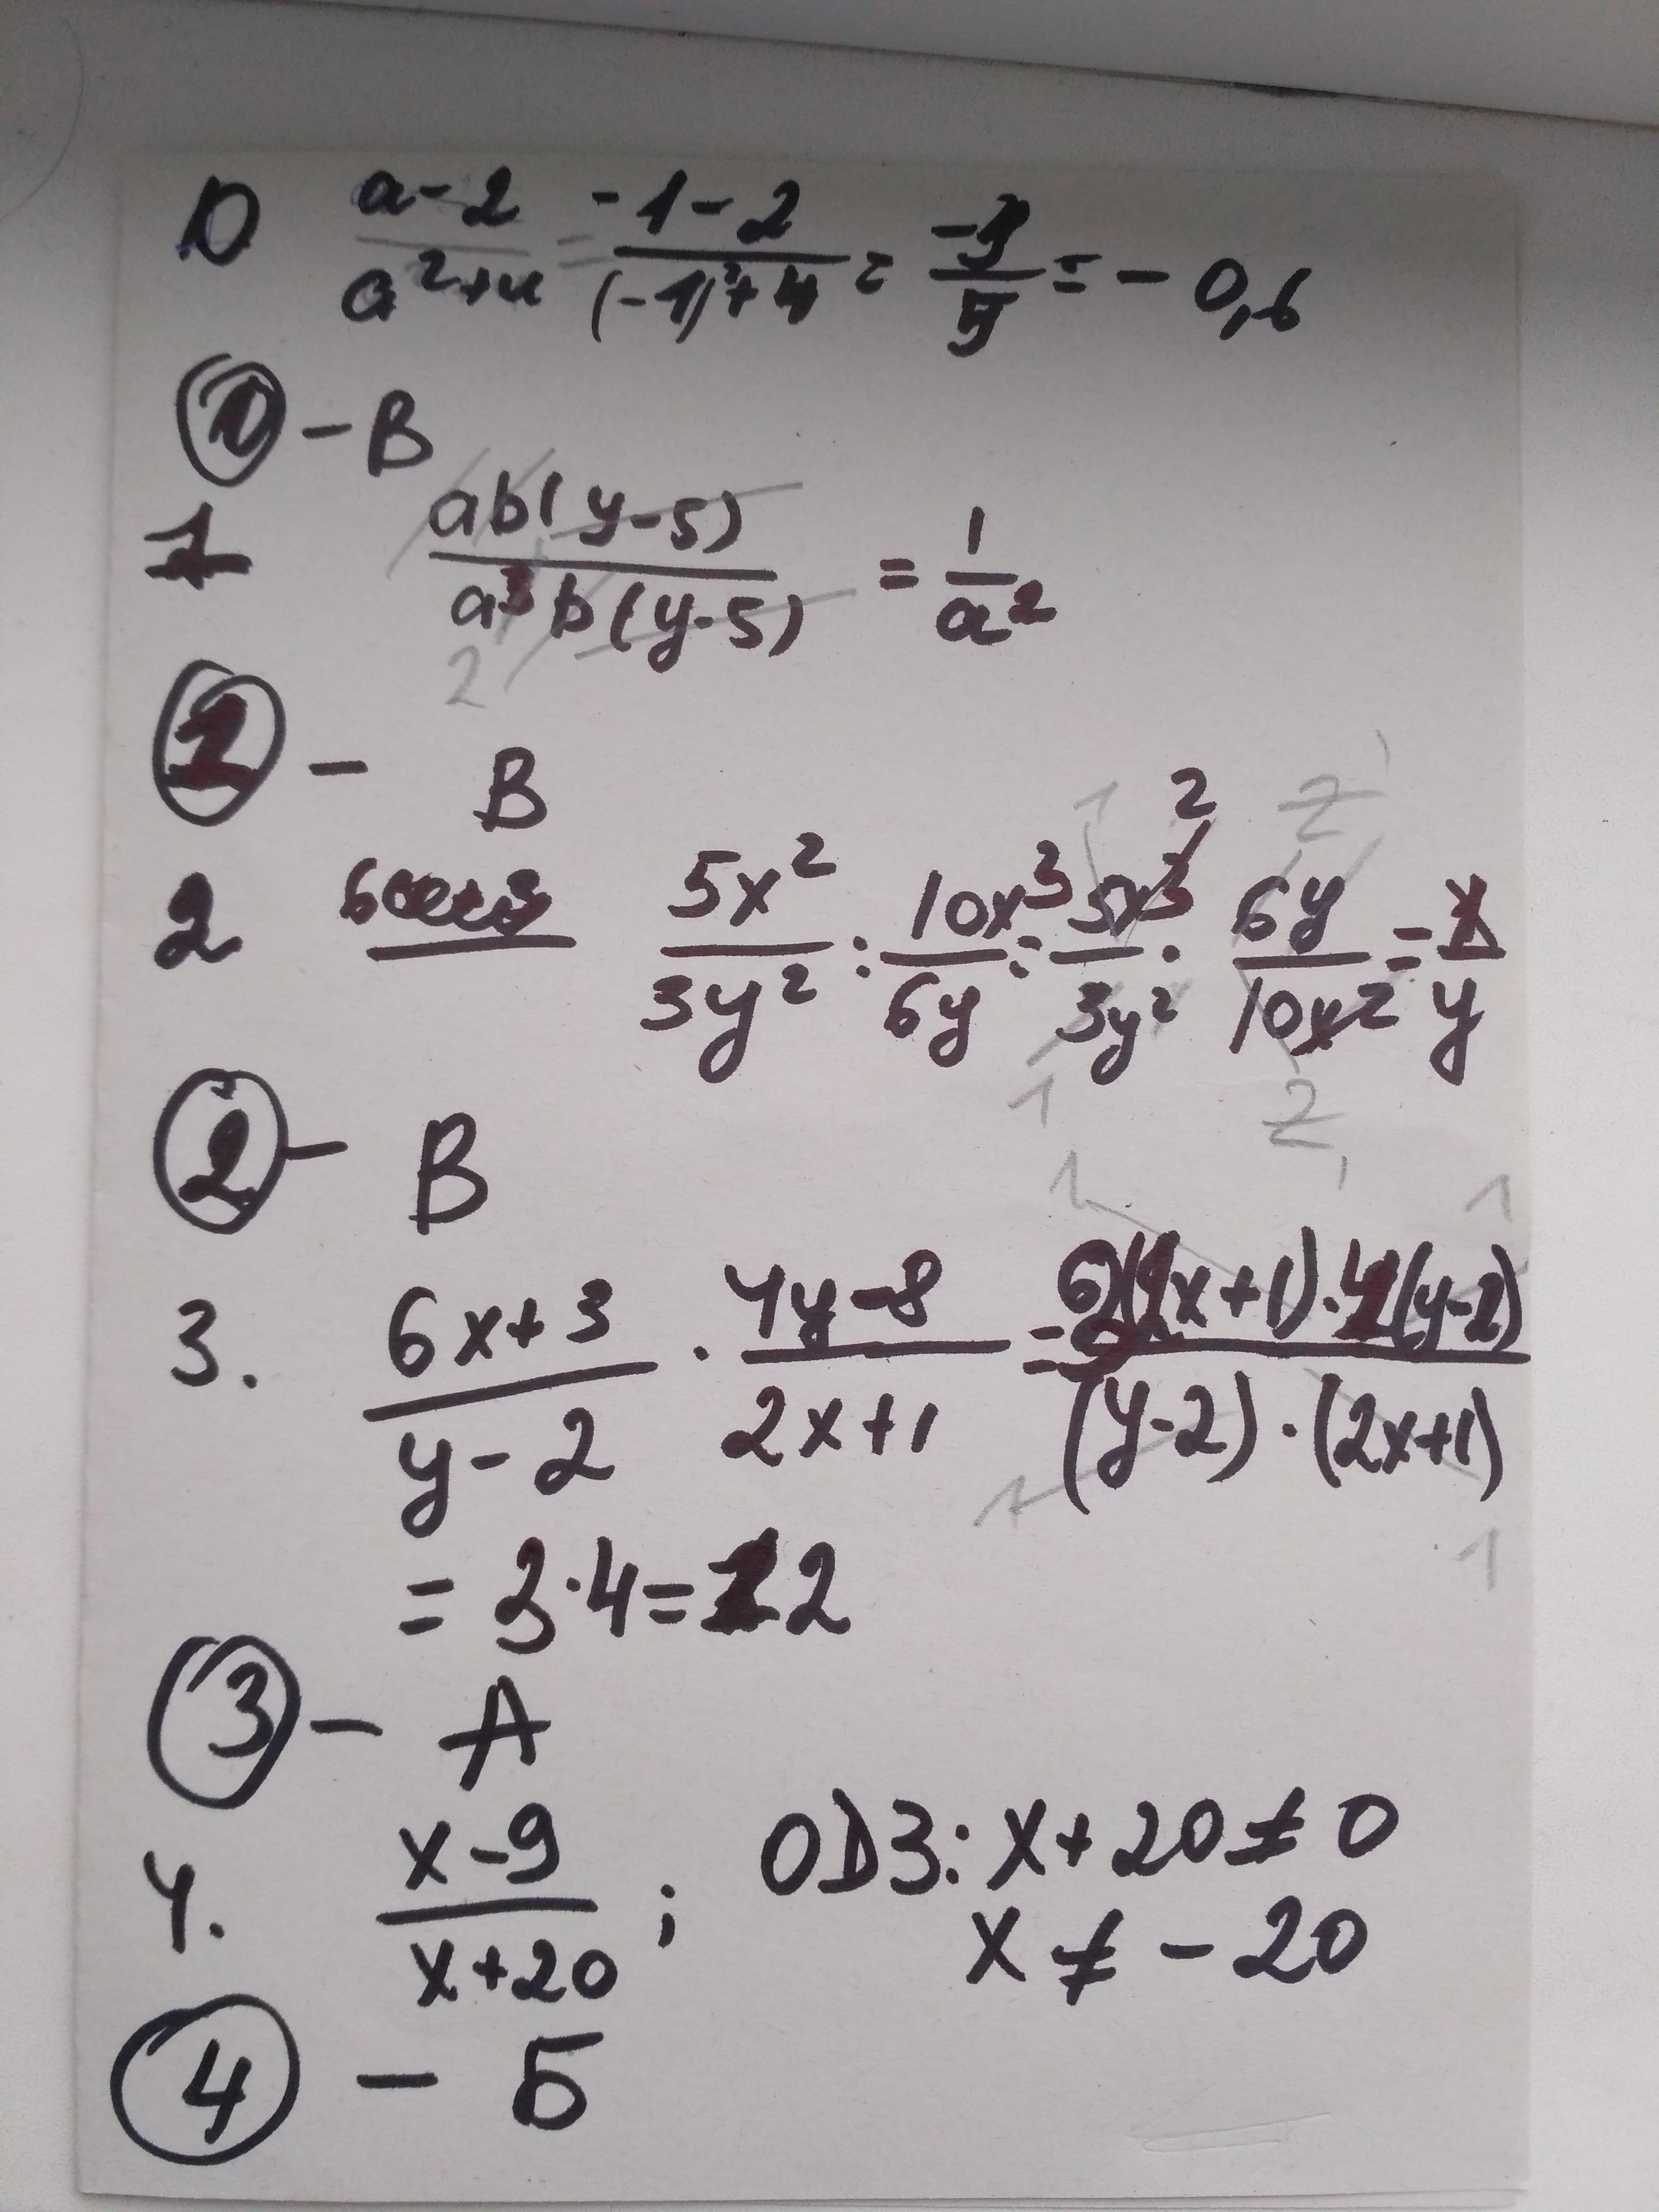 D a-2/a²+4 = -1-2/(-1)²+4 = -3/5 = - 0,6
① - B
1 ab(y-5)/a³b(y-5) = 1/a²
2
① - B
2 5x²/3y² : 10x³/6y = 5x³/3y² · 6y/10x² = x/y
② - B
3. 6x+3/y-2 · 4y-8/2x+1 = 3(2x+1)·4(y-2)/(y-2)·(2x+1)
= 3·4=12
③ - A
4. x-9/x+20 ; ОDЗ: x+20≠0
x ≠ -20
④ - Б